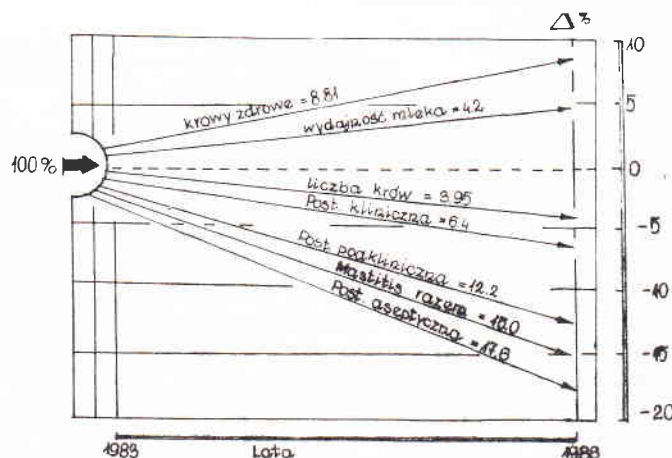 Δ%
10
krowy zdrowe = 8.81
5
wydajność mleka = 4.2
100%
0
liczba krów = 3.95
Post. kliniczna = 6.4
-5
Post podkliniczna = 12.2
-10
Mastitis razem = 15.0
Post. aseptyczna = 17.6
-15
-20
1983 Lata 1988